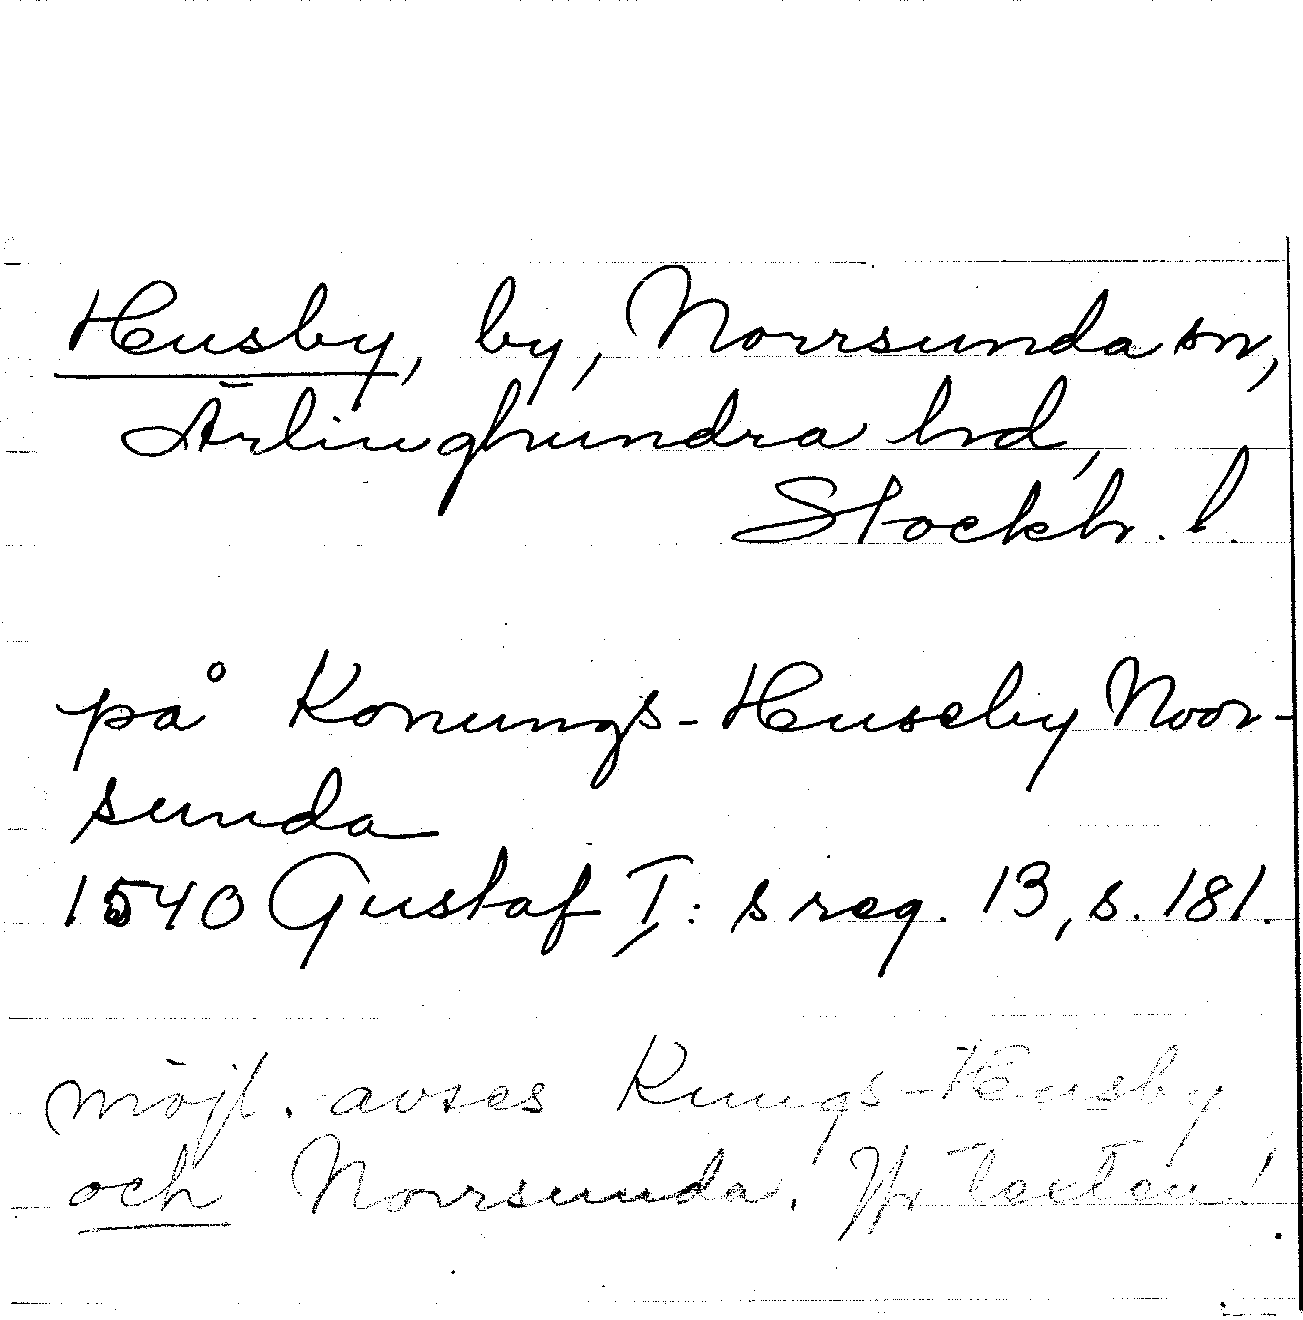 Husby, by, Norrsunda sn,
Ärlinghundra hrd,
Stockh. l.
på Konungs-Huseby Noor-
sunda
1540 Gustaf I: s reg. 13, s. 181.
möjl. avses Kungs-Husby
och Norrsunda. Jfr texten!